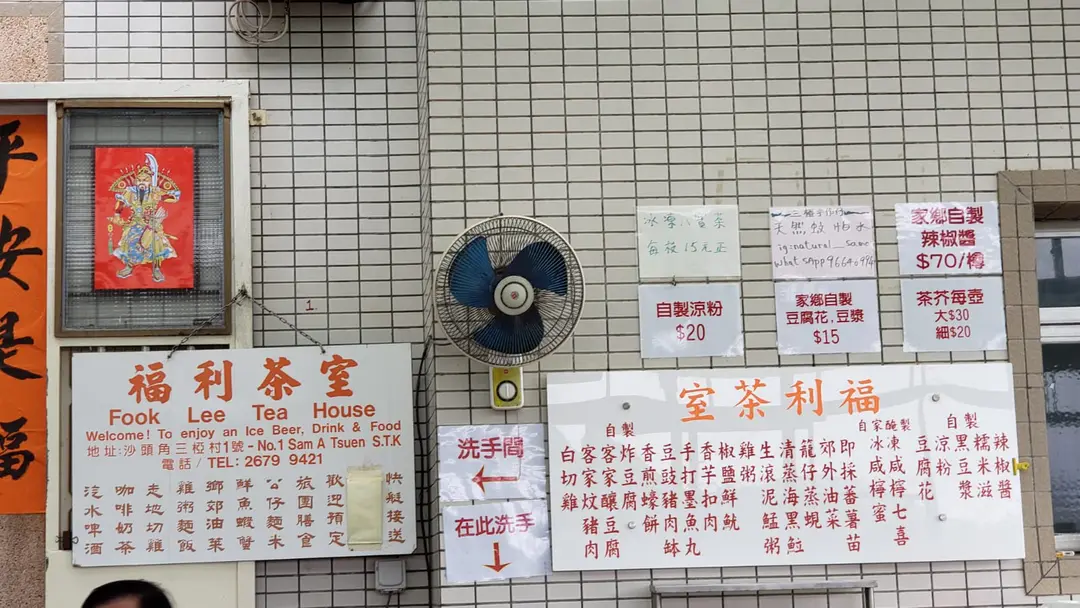 平安是福
福利茶室
Fook Lee Tea House
Welcome! To enjoy an Ice Beer, Drink & Food
地址:沙頭角三椏村1號 - No.1 Sam A Tsuen S.T.K
電話 / TEL: 2679 9421
汽水啤酒
咖啡奶茶
走地切雞
雞粥麵飯
油菜
鮮魚蝦蟹
公仔麵米
旅團膳食
歡迎預定
快艇接送
1
洗手間
在此洗手
每枝15元正
天然蚊怕水
ig=natural_same
WhatsApp 96640994
家鄉自製
辣椒醬
$70/樽
自製涼粉
$20
家鄉自製
豆腐花,豆漿
$15
茶芥每壺
大$30
細$20
福利茶室
自製
辣椒醬
糯米滋
黑豆漿
涼粉
豆腐花
自家醃製
凍咸檸七喜
冰咸檸蜜
即採番薯苗
郊外油菜
龍仔蒸蜆
清蒸海黑䱛
生滾泥鯭粥
雞粥
椒鹽鮮魷
香芋扣肉
手打墨魚丸
豆豉豬肉缽
香煎蠔餅
自製
炸豆腐
客家釀豆腐
客家炆豬肉
白切雞